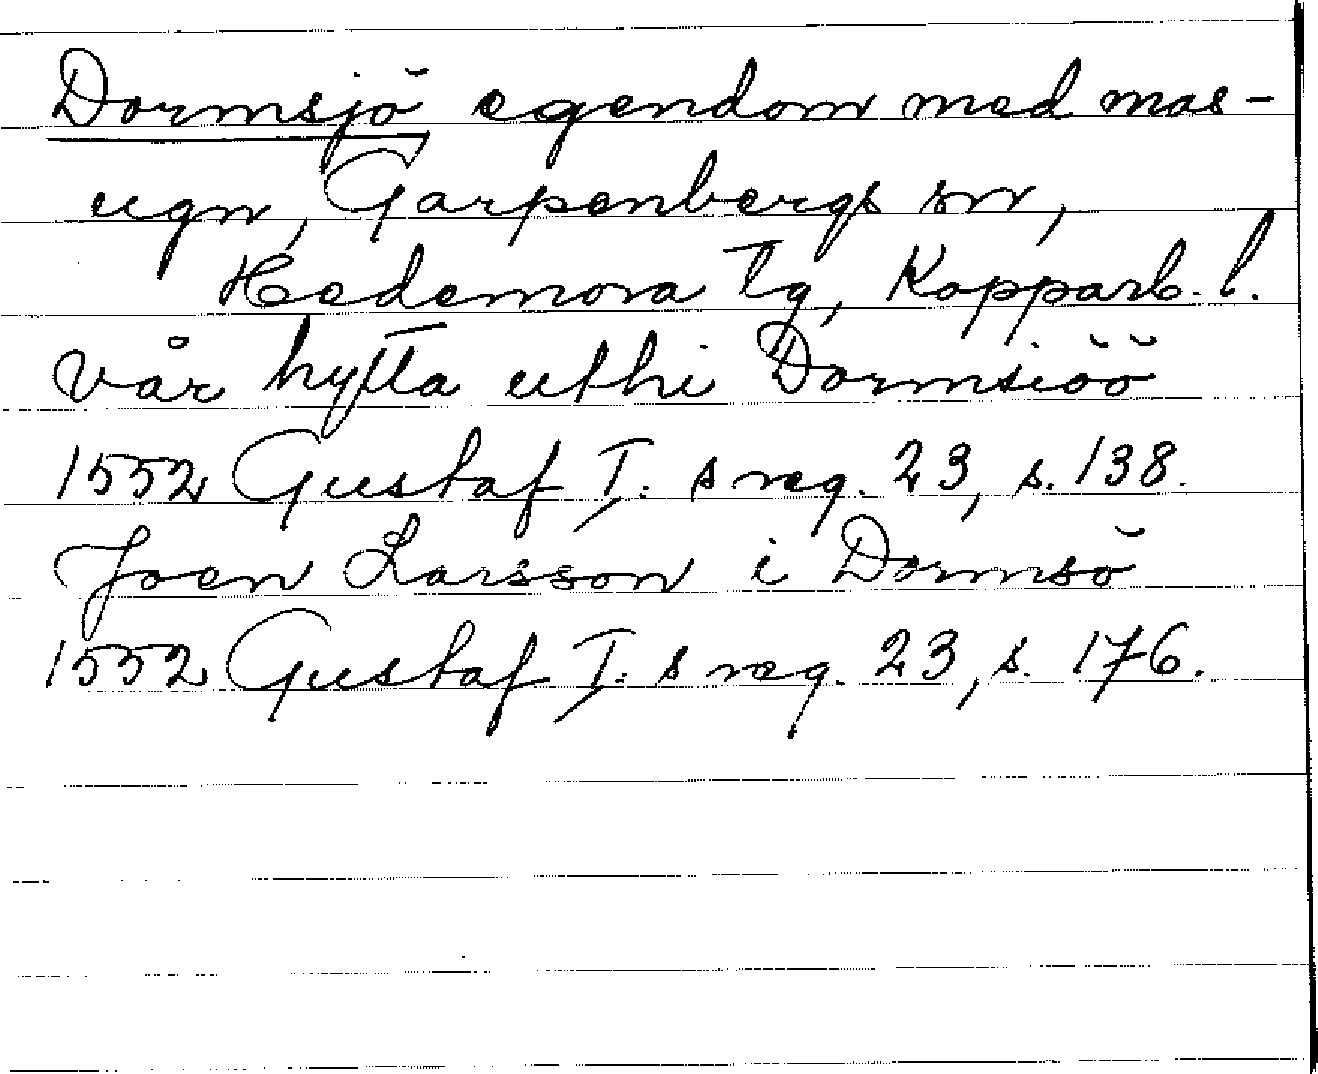 Dormsjö egendom med mas-
ugn, Garpenbergs sn,
Hedemora tg, Kopparb. l.
vår hytta uthi Dormsiöö
1552 Gustaf I: s reg. 23, s. 138.
Joen Larsson i Dormsö
1552 Gustaf I: s reg. 23, s. 176.